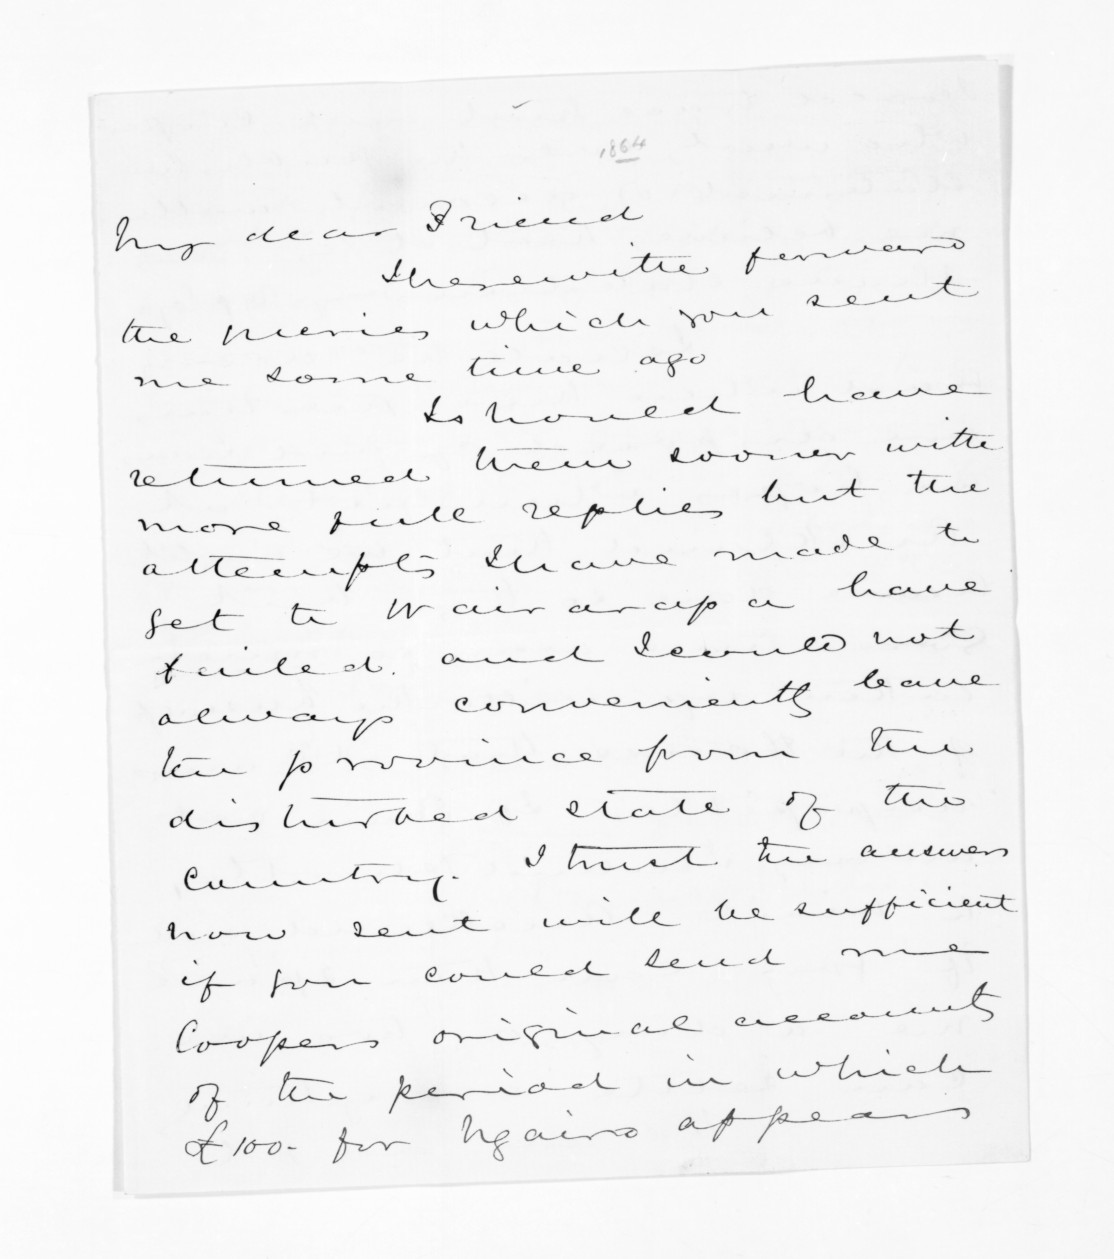 1864
My dear Friend
I herewith forward
the queries which you sent
me some time ago
I should have
returned them sooner with
more full replies but the
attempts I have made to
get to Wairarapa have
failed. and I could not
always conveniently leave
the province from the
disturbed state of the
country. I trust the answers
now sent will be sufficient
if you could send me
Coopers original accounts
of the period in which
£100- for Ngairo appears